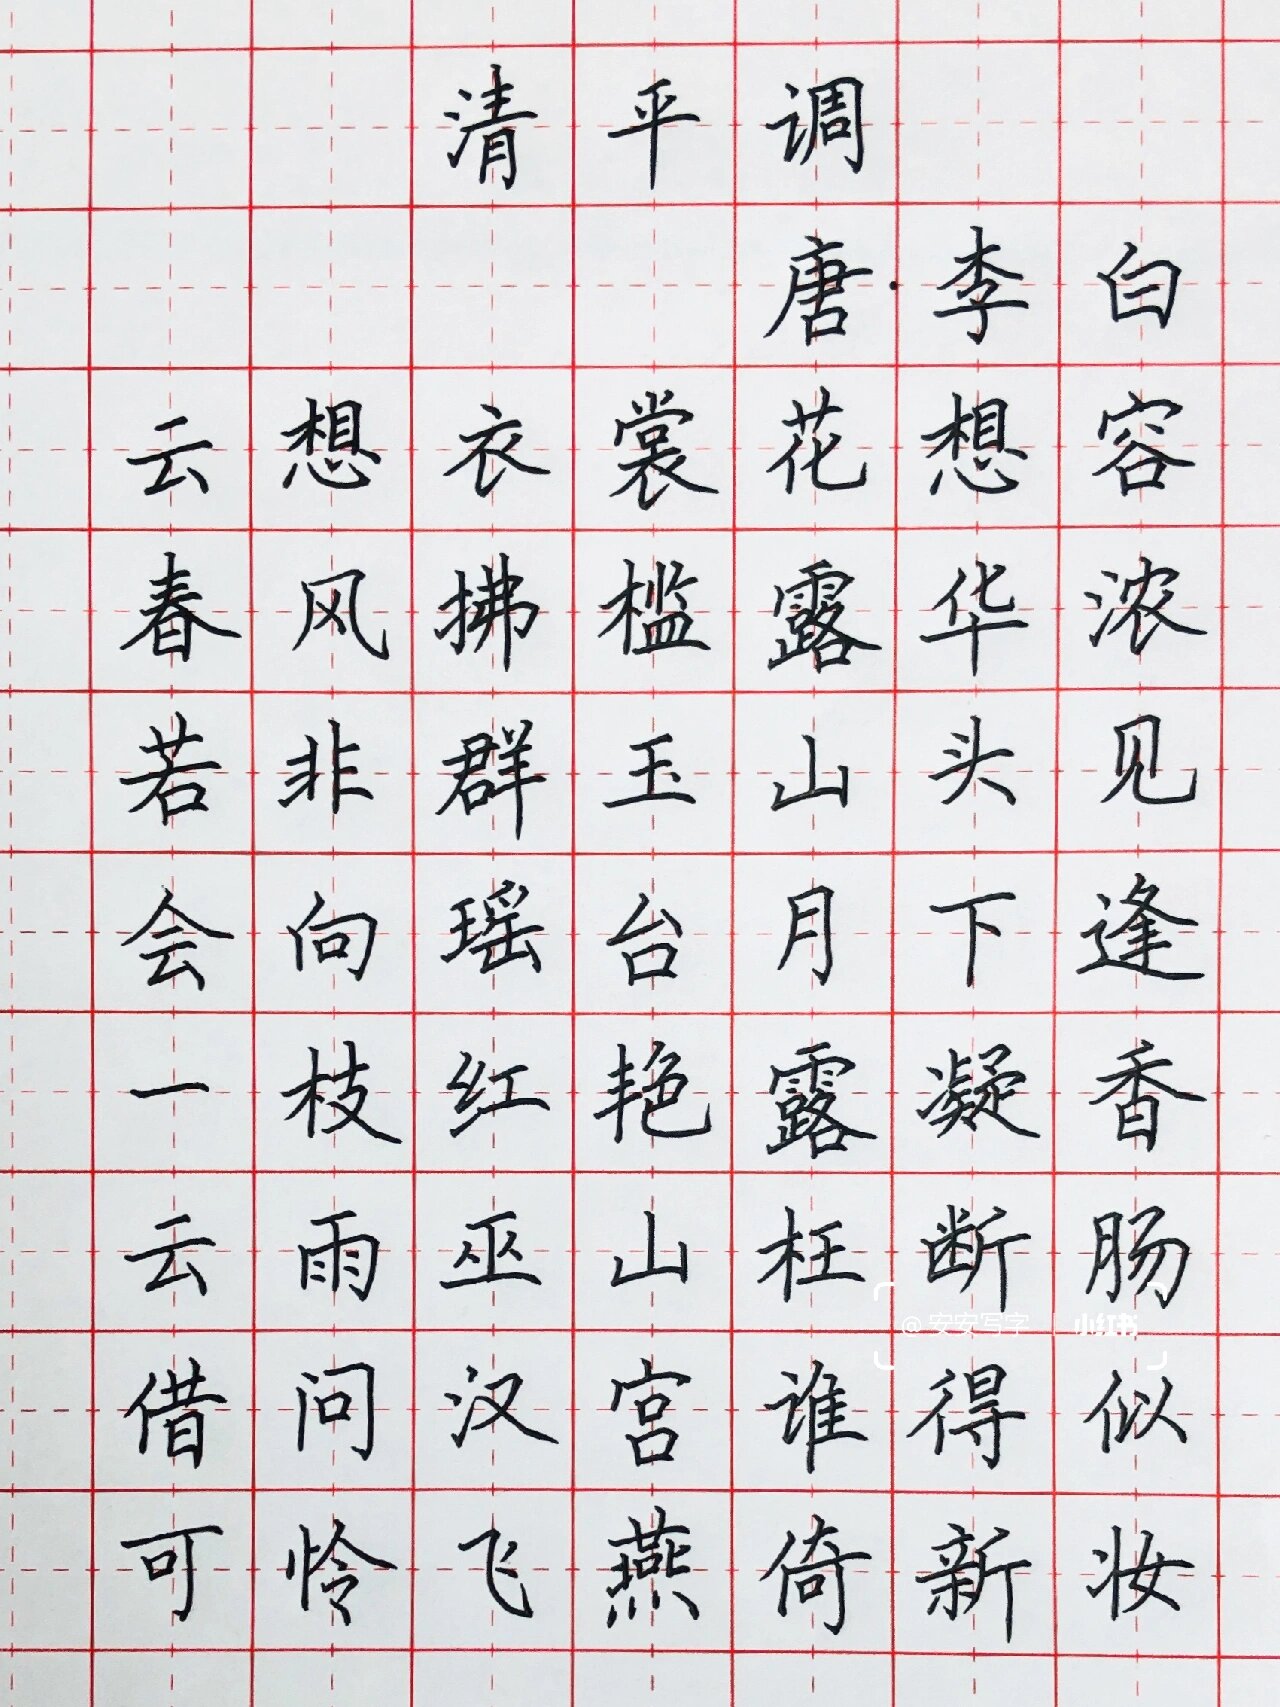 清平调
唐·李白
云想衣裳花想容
春风拂槛露华浓
若非群玉山头见
会向瑶台月下逢
一枝红艳露凝香
云雨巫山枉断肠
@安安写字 小红书
借问汉宫谁得似
可怜飞燕倚新妆